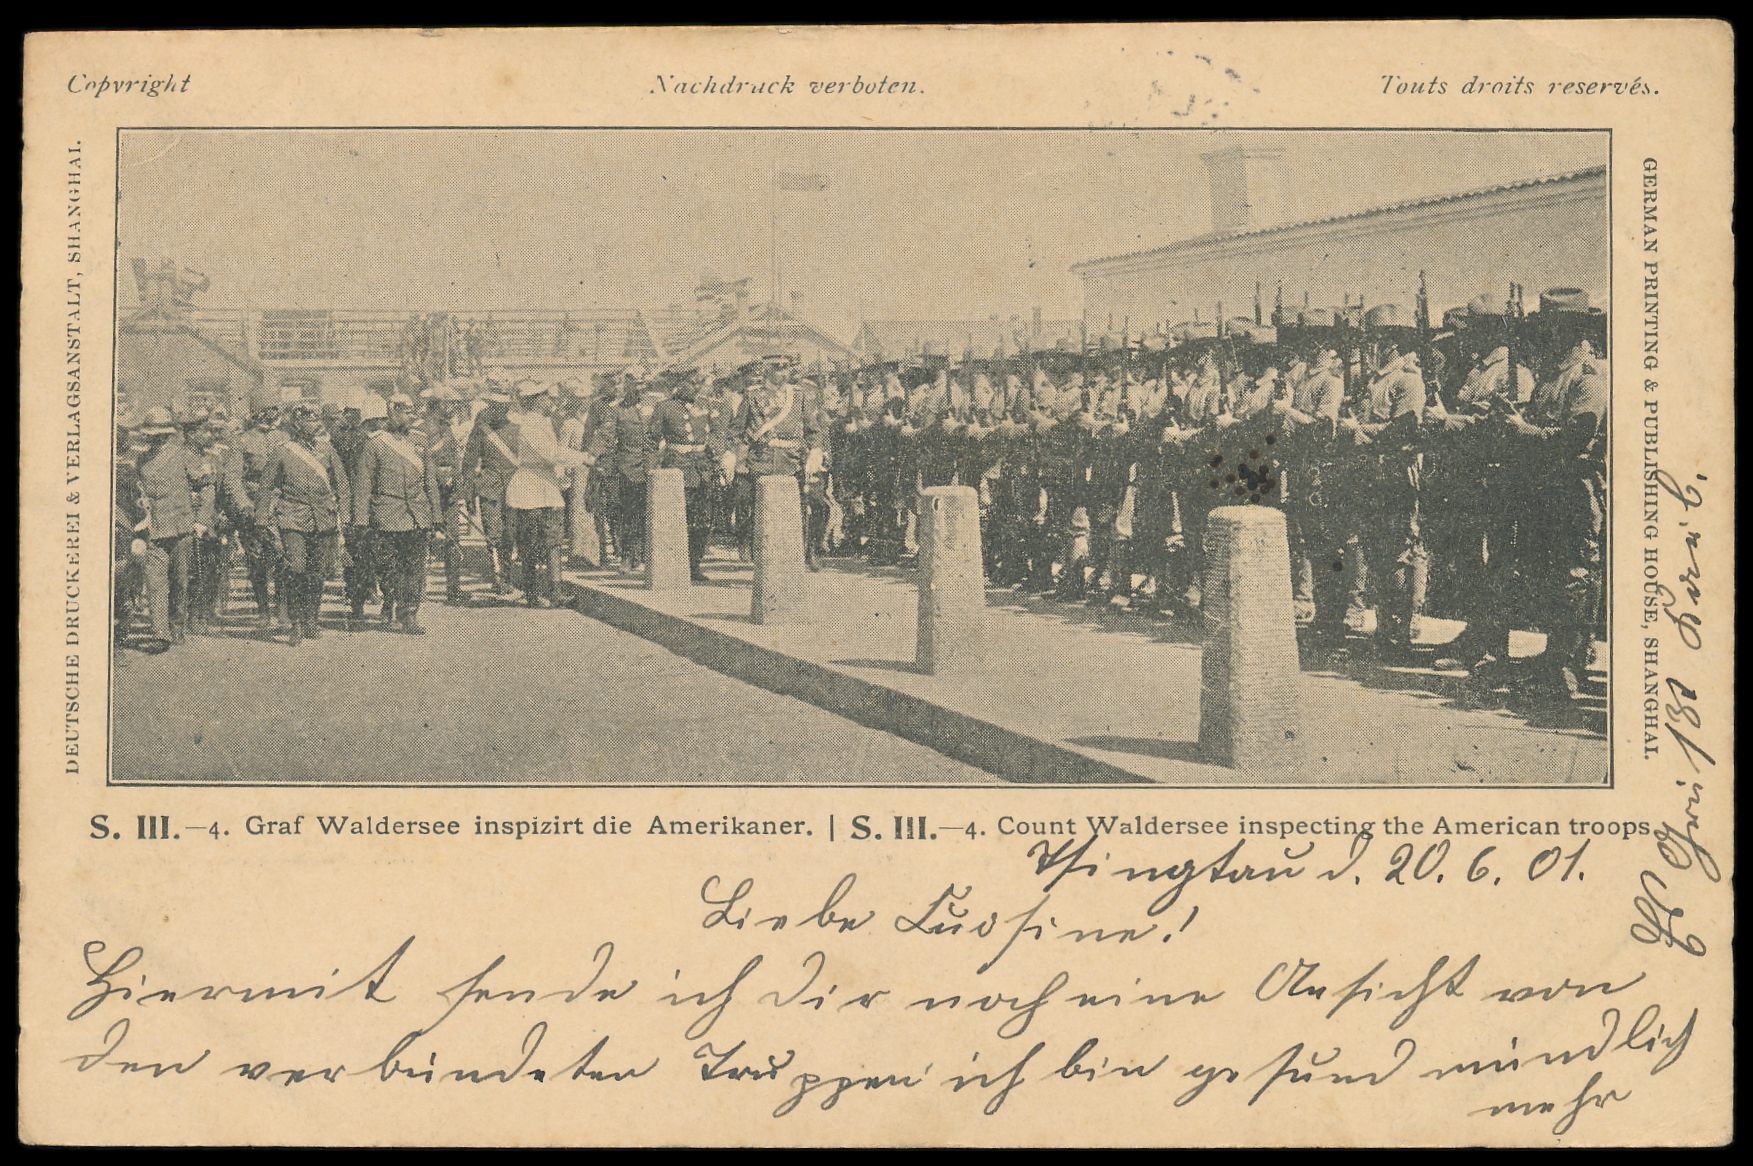 Copyright
Nachdruck verboten.
Touts droits reservés.
DEUTSCHE DRUCKEREI & VERLAGSANSTALT, SHANGHAI.
GERMAN PRINTING & PUBLISHING HOUSE, SHANGHAI.
S. III.—4. Graf Waldersee inspizirt die Amerikaner. | S. III.—4. Count Waldersee inspecting the American troops.
Tsingtau d. 20. 6. 01.
Liebe Cuosine!
Hiermit sende ich dir noch eine Ansicht von
den verbündeten Truppen ich bin gesund mündlich
mehr